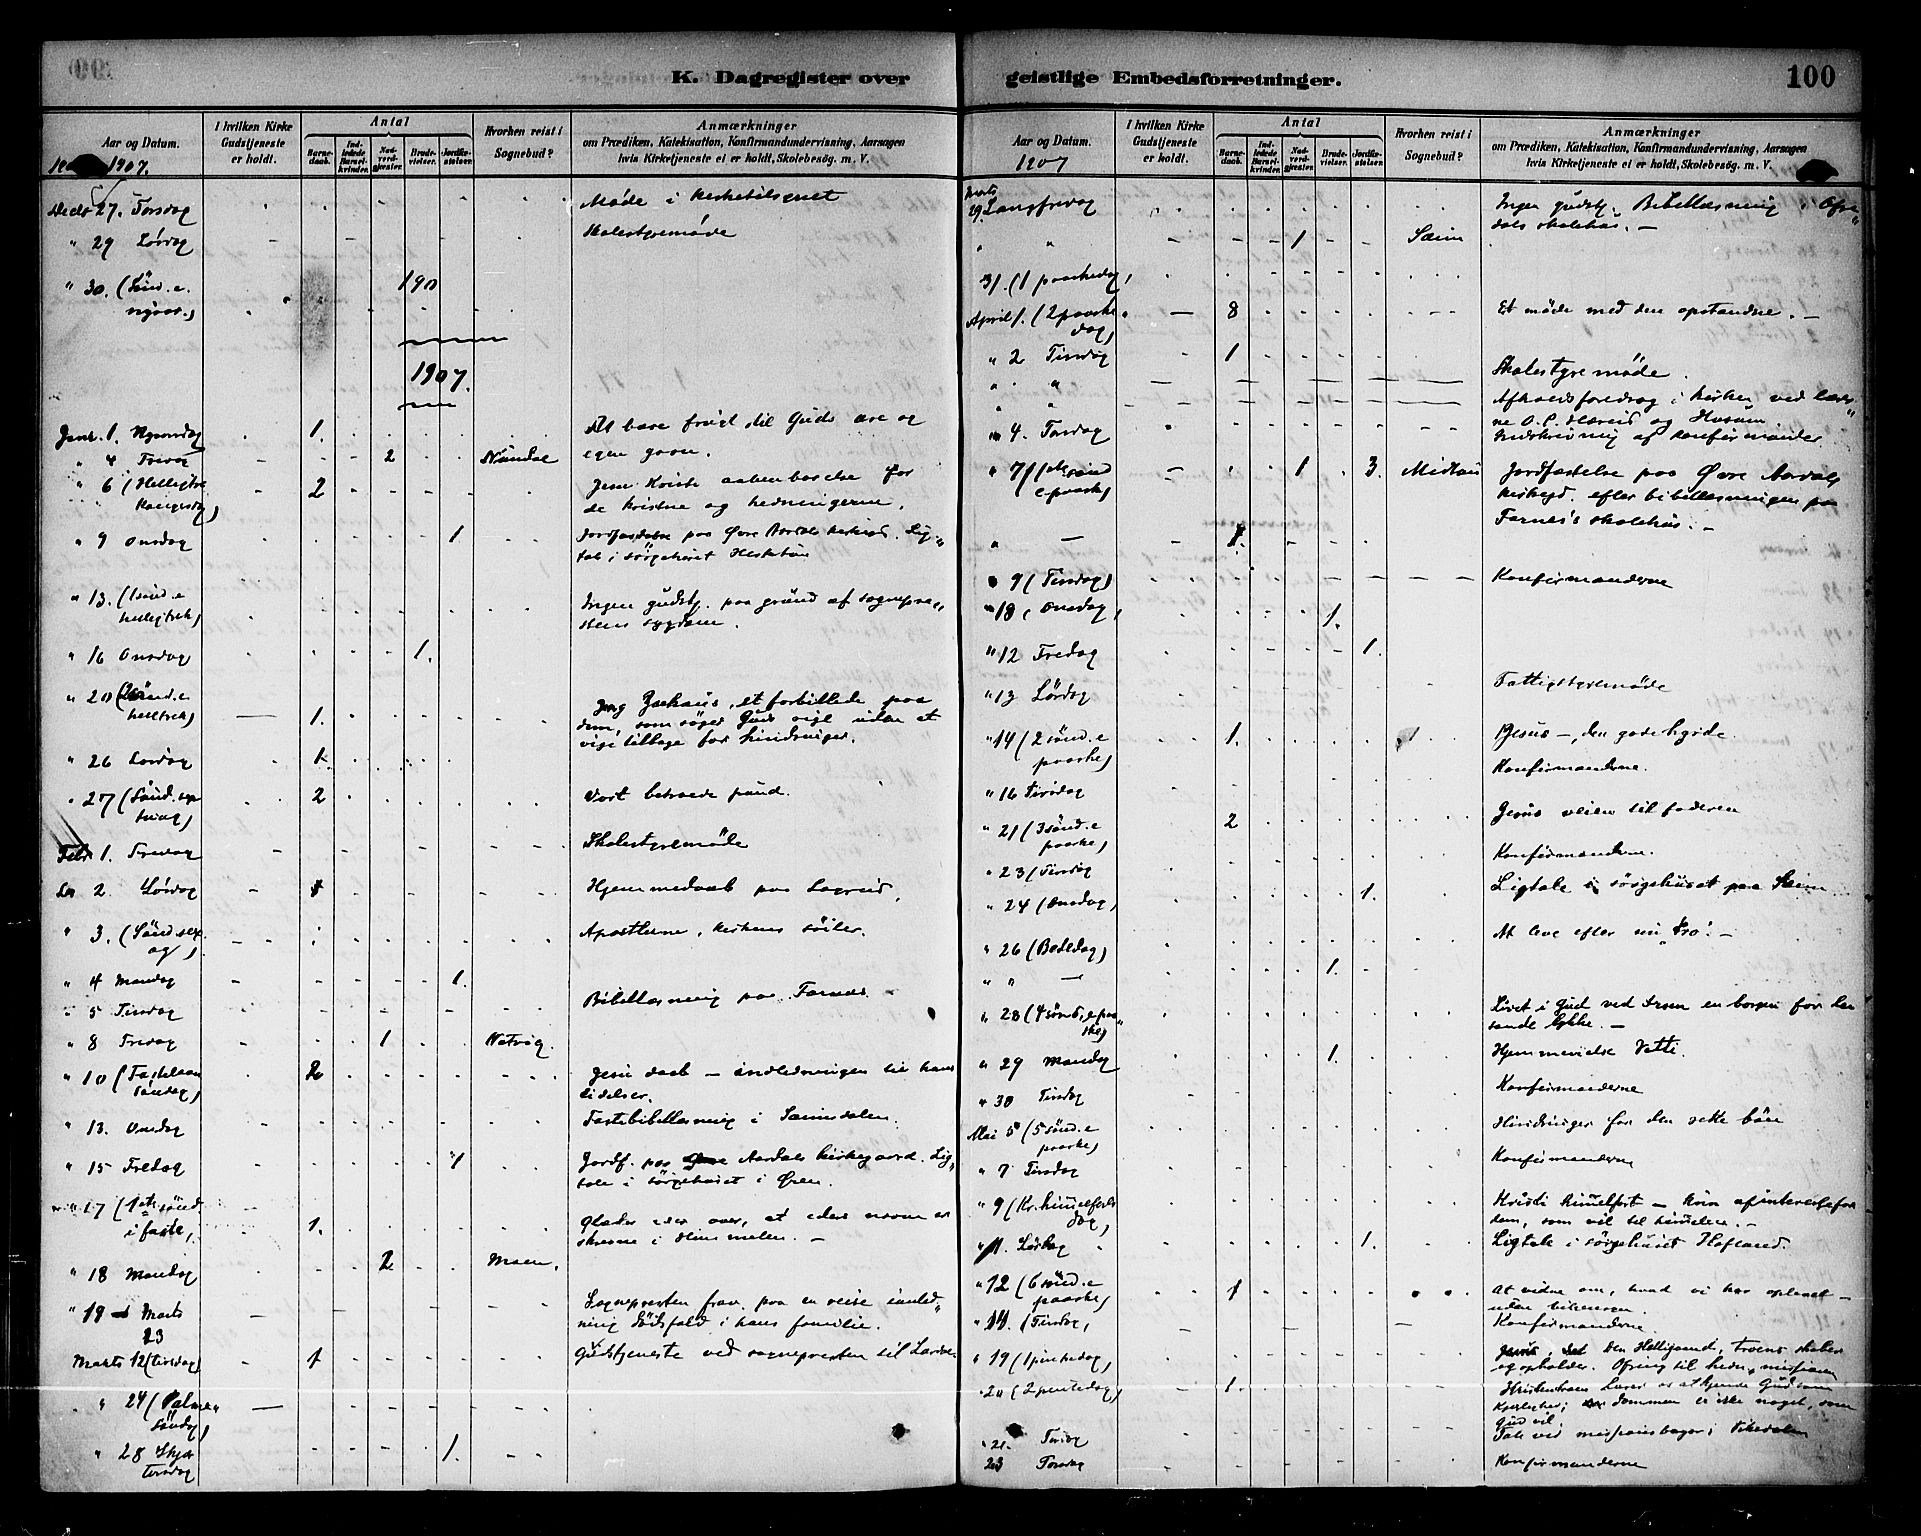 K. Dagregister over
Aar og Datum.
1907.
I hvilken Kirke Gudstjeneste er holdt.
Antal
Barnedaab.
Indledede Barselkvinder.
Nadverdgjester.
Brudevielser.
Jordfæstelser.
Hvorhen reist i Sognebud?
Anmærkninger
om Prædiken, Katekisation, Konfirmandundervisning, Aarsagen
hvis Kirketjeneste ei er holdt, Skolebesøg. m. V.
27. Torsdag Møde i
" 29 Lørdag Skolestyremøde
" 30. (Sønd. e.
nyaar)
1907.
Janr. 1. Nyaarsdag 1. At bære frugt til Guds ære og
egen gavn.
" 4 Fredag 2 Nundal
" 6 (Helligtre 2 Jesu Kristi aabenbarelse for
kongersdag) de kristne og hedningerne.
" 9 Onsdag 1 Jordfæstelse paa Øvre Aardal kirkegd. Lig-
tale i sørgehuset
" 13. (1 sønd. e Ingen gudstj. paa grund af sognepre-
helligtrek) stens sygdom.
" 16 Onsdag 1.
" 20 (2 sønd. e
helligtrek) 1. Zachæus, et forbillede paa
dem, som søger Guds rige uden at
vige tilbage for hindringer.
" 26 Lørdag 1.
" 27 (Sønd. sep 2 Vort betroede pund.
tuag)
Febr 1. Fredag Skolestyremøde
2. Lørdag 1 Hjemmedaab paa Lægreid.
" 3. (Sønd. sex. Apostlerne, kirkens søiler.
ag)
" 4 Mandag 1.
" 5 Tirsdag Bibellæsning paa Farnæs.
" 8 Fredag 1 Natvig.
" 10 (Fastelavns 2 Jesu daab – indledningen til hans
søndag) lidelser.
" 13. Onsdag Fastebibellæsning i Sæimsdalen.
" 15 Fredag 1 Jordf. paa Aardals kirkegaard. Lig-
tale i sørgehuset i Øren.
" 17 (1ste sønd.
i faste) 1. Glæder eder over, at eders navne er
skrevne i Himmelen. –
" 18 Mandag 2 Moen.
" 19 – Marts Sognepresten frav. paa en reise i anled-
23 ning dødsfald i hans familie.
Marts 12 (tirsdag) 1 Gudstjeneste ved sognepresten til Lærdal
" 24 (Palme-
søndag)
" 28 Skjær 1.
torsdag
geistlige Embedsforretninger.
100
Aar og Datum.
1907
I hvilken Kirke Gudstjeneste er holdt.
Antal
Barnedaab.
Indledede Barselkvinder.
Nadverdgjester.
Brudevielser.
Jordfæstelser.
Hvorhen reist i Sognebud?
Anmærkninger
om Prædiken, Katekisation, Konfirmandundervisning, Aarsagen
hvis Kirketjeneste ei er holdt, Skolebesøg. m. V.
Marts
29. Langfredag Ingen gudstj. Bibellæsning i Ofre-
dals skolehus. –
" " 1 Sæim
31. (1 paaskedag)
April 1. (2 paaske 8 Et møde med den opstandne. –
dag)
" 2 Tirsdag 1
" " Skolestyremøde.
" " Afholdsforedrag i kirken ved lærer-
ne O. P. og
" 4. Torsdag Indskrivning af konfirmander
" 7 (1ste sønd 1 3. Midtun Jordfæstelse paa Øvre Aardals
e paaske) kirkegd. efter bibellæsningen paa
Farnes's skolehus. –
" –
" 9 (Tirsdag) Konfirmanderne
" 10 (Onsdag) 1.
" 12 Fredag 1.
" 13 Lørdag Fattigstyremøde
" 14 (2 sønd. e 1. 1 Jesus –, den gode hyrde.
paaske)
" 16 Tirsdag Konfirmanderne.
" 21 (3 sønd. e 2 Jesus veien til faderen
paaske)
" 23 (Tirsdag Konfirmanderne.
" 24 (Onsdag) 1. Ligtale i sørgehuset paa Sæim
" 26 (Bededag) At leve efter sin tro. –
" " – 1.
" 28 (4 sønd. e paa- Livet i Gud ved troen en borgen for
ske) sande lykke. –
" 29 Mandag 1. Hjemmevielse Vetti.
" 30 Tirsdag Konfirmanderne
Mai 5 (5 sønd. e Hindringer for den rette bøn
paaske)
" 7 Tirsdag Konfirmanderne
" 9 (Kr. himmelfarts Kristi himmelfart – kun af interesse for
dag) dem, som vil til himmelen. –
" 11. Lørdag 1. Ligtale i sørgehuset Hofland.
" 12 (6 sønd. e 1 At vidne om, hvad vi har oplevet –
paaske) uden
" 14. (Tirsdag) Konfirmanderne.
" 19 (1 pinsedag) Den Helligaand, troens skaber
og opholder. Ofring til hedn. missionen
" 20 (2 pinsedag) 1. at kjende Gud som
Kjærlighed; dommen er ikke noget, som
Gud vil.
" 21. Tirsdag Tale ved i Vikedalen
23 Torsdag Konfirmanderne